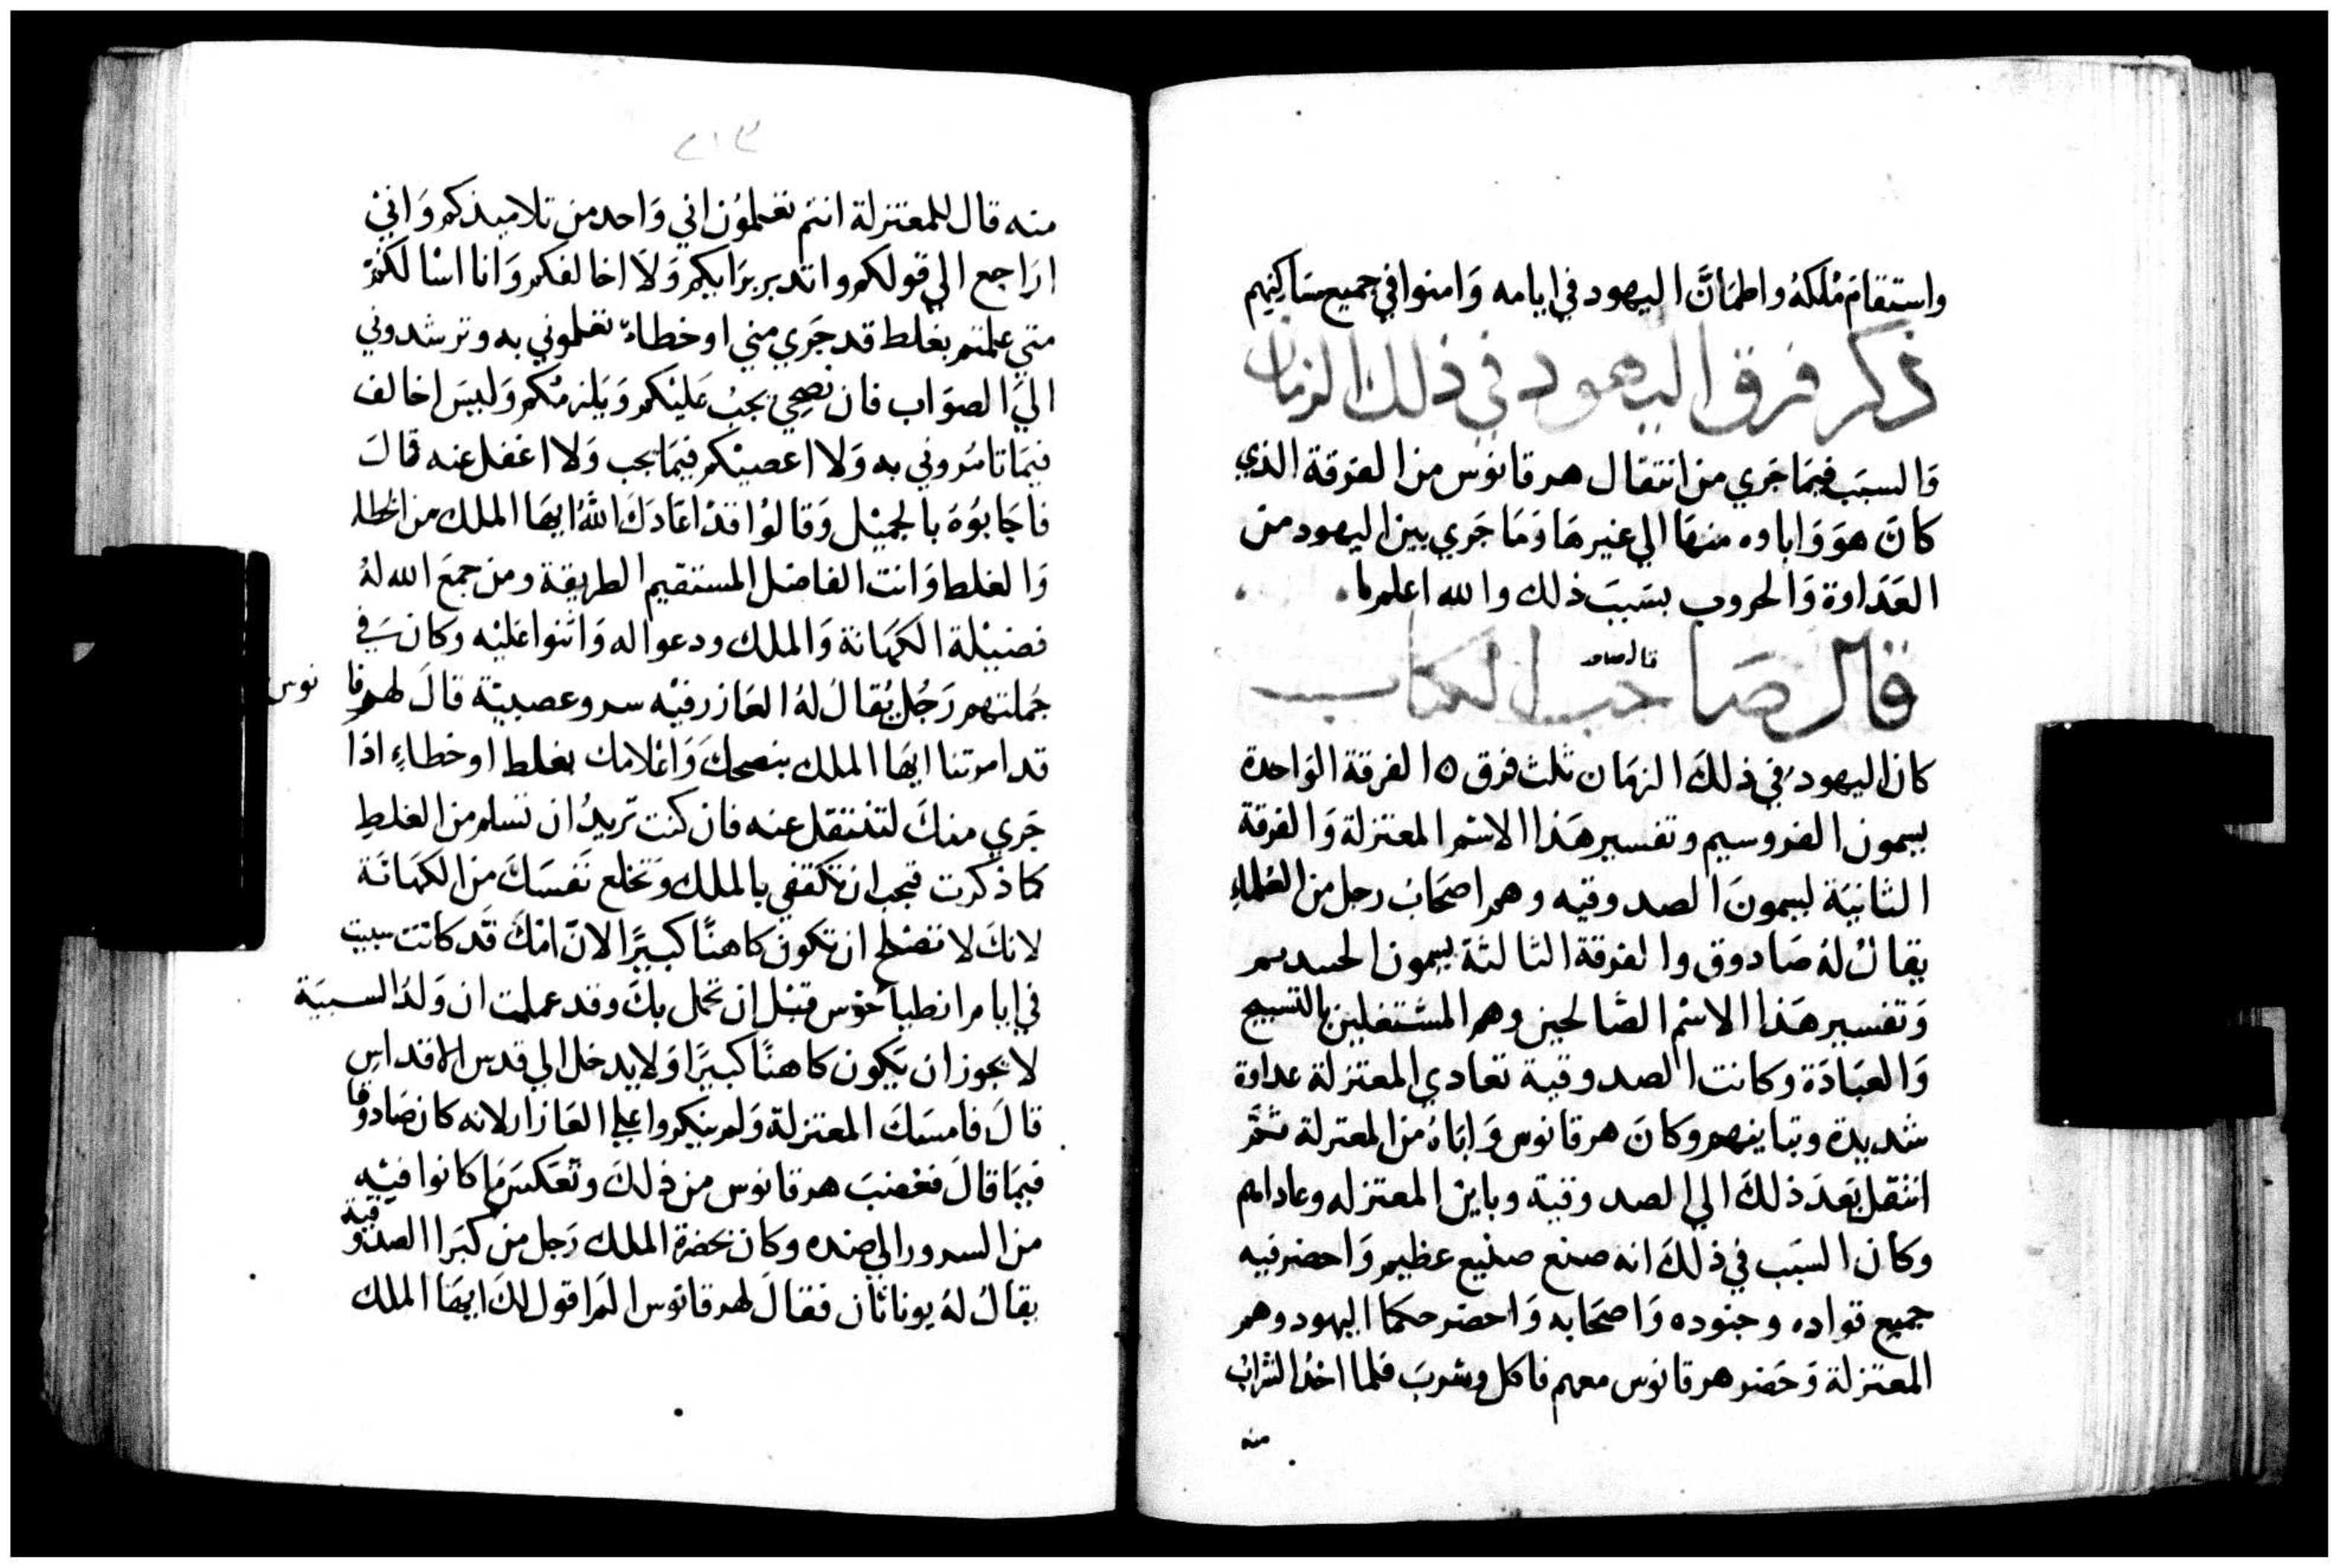 واستقام مُلكهُ واطمَأنَّ اليهود في ايامه وَامنوا في جميع مسَاكنهم
ذكر فرق اليهود في ذلك الزمان
وَالسبَب فيمَا جَري من انتقال هرقانوس من الفرقة الذي
كانَ هوَ وَاباوه منهَا الي غيرهَا وَمَا جَري بين اليهود من
العَدَاوة وَالحروب بسَبب ذلك والله اعلم
قال صَاحب الكتاب
كان اليهود في ذلكَ الزمَان ثلث فرق ه الفرقة الوَاحدة
يسمون الفروسيم وتفسير هَذا الاسْم المعتزلة وَالفرقة
الثانيَة يسمونَ الصدوقيه وهم اصحَابُ رجل من العُلماءِ
يقالُ لهُ صَادوق والفرقة الثالثة يسمون الحسديم
وَتفسير هَذا الاسْم الصَالحين وهم المشتغلين بالتسبيح
وَالعبَادَة وكانت الصدوقية تعادي المعتزلة عداوة
شديدة وتباينهم وكانَ هرقانوس وَابَاهُ من المعتزلة ثمَّ
انتقل بَعدَ ذلكَ الي الصدوقية وباينْ المعتزله وعاداهم
وكان السبَب في ذلكَ انه صنع صنيع عظيم وَاحضر فيه
جميع قواده وجنوده وَاصحَابه وَاحضر حكما اليهود وهم
المعتزلة وَحَضر هرقانوس معهم فاكل وشربَ فلما اخذ الشرابُ
منه
٢١٣
منه قال للمعتزلة انتم تعلموُن اني وَاحد من تلاميذكم وَانيْ
ارَاجع الي قولكم واتدبر برَايكم وَلاَ اخالفكم وَانا اسْالكمْ
متي علمتم بغلط قد جَري مني او خطاء تعلموني به وترشدوني
اليَ الصوَاب فان نصحي يجبُ عَليْكم وَيَلزمُكم وَليسَ اخالف
فيمَا تامرُوني به وَلا اعصيْكم فيمَا يجب وَلا اغفل عنه قالَ
فاجَابوُهَ بالجميْل وَقالوُا قدْ اعَادَكَ اللهُ ايهَا الملك من الخطا
وَالغلط وَانت الفاضل المستقيم الطريقة ومن جمعَ الله لهُ
فضيْلة الكهَانة وَالملك ودعوا له وَاثنوا عَليْه وكانَ في
جُملتهم رَجُل يُقالُ لهُ العَازر فيْه سر وعصبيْة قالَ لهرقا نوس
قد امرتنا ايهَا الملك بنصحكَ وَاعْلامك بغلط او خطاءٍ اذا
جَري منكَ لتنتقل عنه فان كنت تُريدُ ان تسلم من الغلطِ
كما ذكرت فيجب ان تكتفي بالملك وَتخلع نَفسَكَ من الكهَانَة
لانكَ لا تصْلح ان تكونَ كاهنًا كبيرًا لانَّ امْكَ قَد كانت سبيت
في ايام انطياخوْس قبْل ان تحمل بكَ وقد عملت ان وَلدُ السبيَة
لا يجوز ان يَكون كاهنًا كبيرًا وَلا يدخل الي قدس الاقداس
قالَ فامسَكَ المعتزلة وَلم ينكروا علي العَازار لانه كان صَادوقا
فيمَا قالَ فغضبَ هرقانوس من ذلكَ وتَعَكسَ مَا كانوا فيْه
من السرور الي ضده وكان بحضرة الملك رَجل من كبَرا الصدوقية
يقالُ لهُ يوناثان فقالَ لهرقانوس المَ اقول لكَ ايهَا الملك